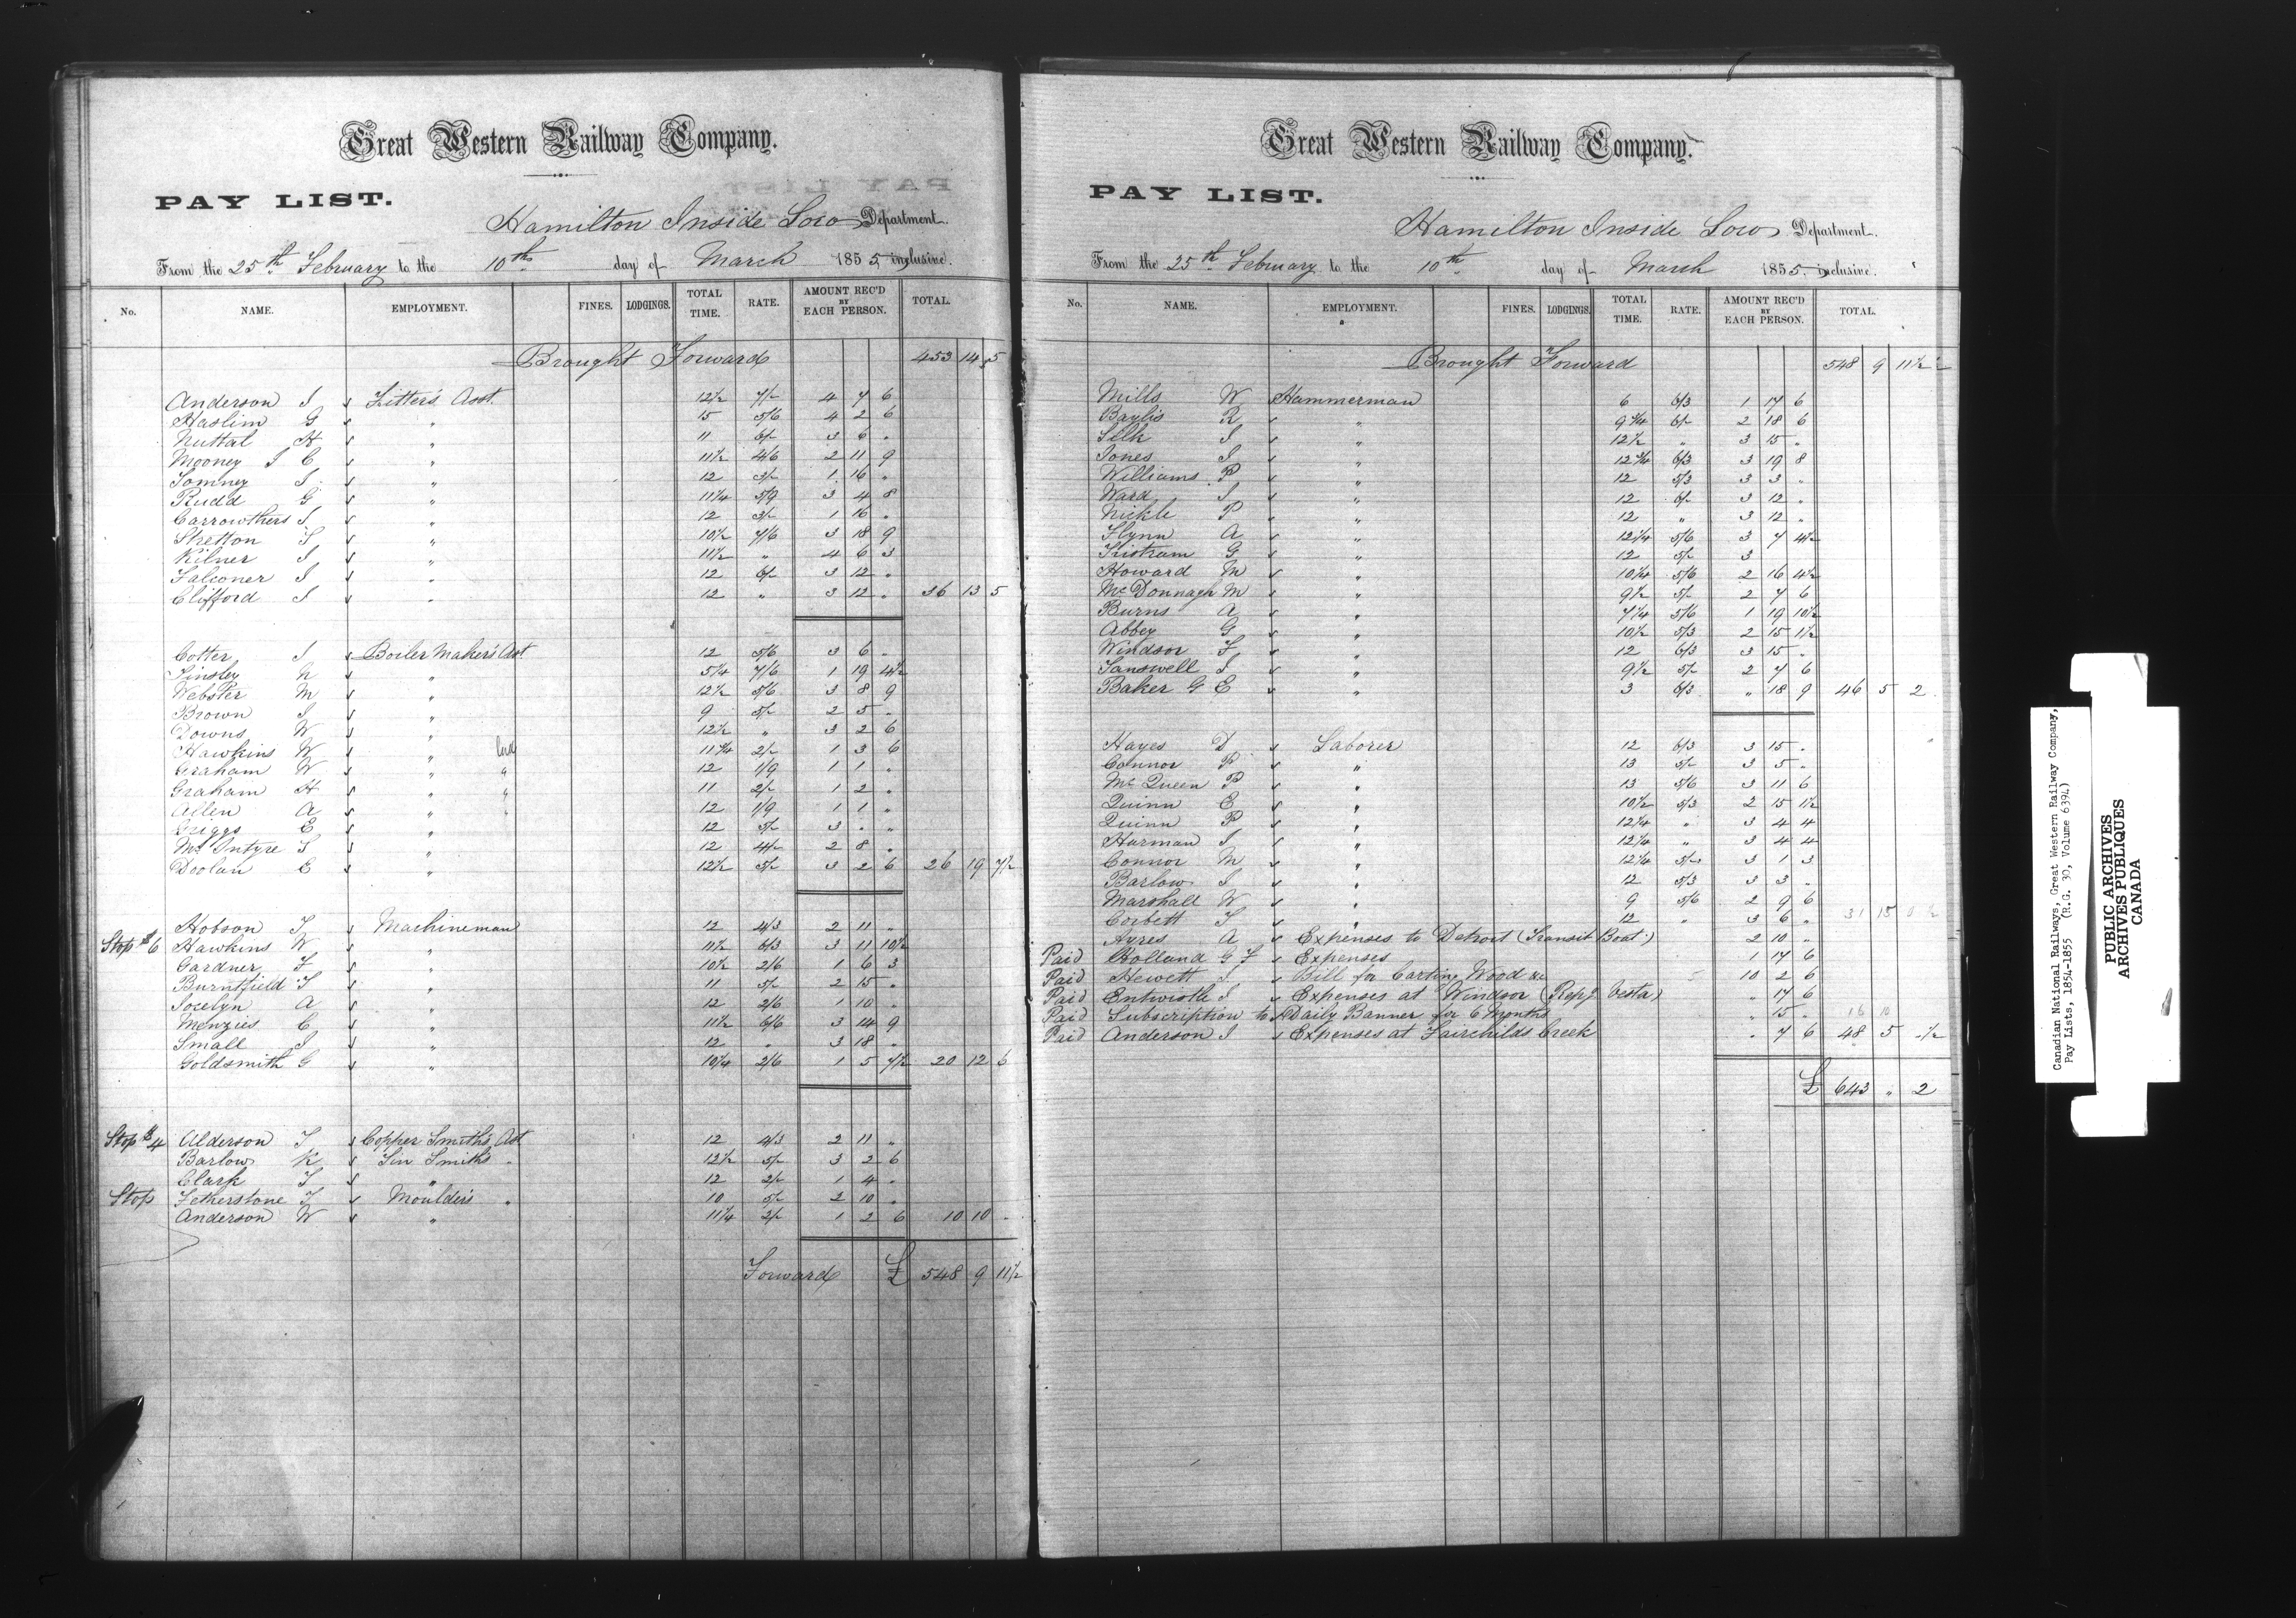 Great Western Railway Company.
PAY LIST.
Hamilton Inside Loco Department.
From the 25th February to the 10th day of March 1855 inclusive.
No. NAME. EMPLOYMENT. FINES. LODGINGS. TOTAL TIME. RATE. AMOUNT REC'D BY EACH PERSON. TOTAL.
Brought Forward 453 14 5
Anderson J Fitter's Asst. 12½ 7/- 4 7 6
Haslim G " 15 5/6 4 2 6
Nuttal H " 11 6/- 3 6 "
Mooney J C " 11½ 4/6 2 11 9
Tomney J " 12 3/- 1 16 "
Rudd G " 11¼ 5/9 3 4 8
Carrowthers J " 12 3/- 1 16 "
Stretton T " 10½ 7/6 3 18 9
Kilner J " 11½ " 4 6 3
Falconer J " 12 6/- 3 12 "
Clifford J " 12 " 3 12 " 36 13 5
Cotter J Boiler Maker's Asst 12 5/6 3 6 "
Tinsley N " 5¼ 7/6 1 19 4½
Webster M " 12½ 5/6 3 8 9
Brown J " 9 5/- 2 5 "
Downs W " 12½ " 3 2 6
Hawkins W " Lad 11¾ 2/- 1 3 6
Graham W " " 12 1/9 1 1 "
Graham H " " 11 2/- 1 2 "
Allen A " " 12 1/9 1 1 "
Griggs E " 12 5/- 3 " "
McIntyre T " 12 4/- 2 8 "
Doolan C " 12½ 5/- 3 2 6 26 19 7½
Hobson T Machineman 12 4/3 2 11 "
Stop $6 Hawkins W " 11½ 6/3 3 11 10½
Gardner F " 10½ 2/6 1 6 3
Burntfield T " 11 5/- 2 15 "
Jocelyn A " 12 2/6 1 10 "
Menzies C " 11½ 6/6 3 14 9
Small J " 12 " 3 18 "
Goldsmith G " 10¼ 2/6 1 5 7½ 20 12 6
Stop $4 Alderson T Copper Smith's Asst 12 4/3 2 11 "
Barlow K Tin Smith's " 12½ 5/- 3 2 6
Clark T " 12 2/- 1 4 "
Stop Fetherstone T Moulder's " 10 5/- 2 10 "
Anderson W " 11¼ 2/- 1 2 6 10 10 "
Forward £ 548 9 11½
Great Western Railway Company.
PAY LIST.
Hamilton Inside Loco Department.
From the 25th February to the 10th day of March 1855 inclusive.
No. NAME. EMPLOYMENT. FINES. LODGINGS. TOTAL TIME. RATE. AMOUNT REC'D BY EACH PERSON. TOTAL.
Brought Forward 548 9 11½
Mills W Hammerman 6 6/3 1 17 6
Baylis R " 9¾ 6/- 2 18 6
Selk J " 12½ " 3 15 "
Jones J " 12¾ 6/3 3 19 8
Williams P " 12 5/3 3 3 "
Ward J " 12 6/- 3 12 "
Nickle P " 12 " 3 12 "
Flynn A " 12¼ 5/6 3 7 4½
Tristram G " 12 5/- 3
Howard M " 10¼ 5/6 2 16 4½
McDonnagh M " 9½ 5/- 2 7 6
Burns A " 7¼ 5/6 1 19 10½
Abbey G " 10½ 5/3 2 15 1½
Windsor F " 12 6/3 3 15 "
Tanswell J " 9½ 5/- 2 7 6
Baker G E " 3 6/3 " 18 9 46 5 2
Hayes D Laborer 12 6/3 3 15 "
Connor P " 13 5/- 3 5 "
McQueen P " 13 5/6 3 11 6
Quinn E " 10½ 5/3 2 15 1½
Quinn P " 12¼ " 3 4 4
Harman J " 12¼ " 3 4 4
Connor M " 12¼ 5/- 3 1 3
Barlow J " 12 5/3 3 3 "
Marshall W " 9 5/6 2 9 6
Corbett T " 12 " 3 6 " 31 15 0½
Ayres A Expenses to Detroit (Transit Boat) 2 10 "
Paid Holland G F Expenses 1 17 6
Paid Hewett J Bill for Carting Wood &c 10 2 6
Paid Entwistle J Expenses at Windsor (Repg Vesta) " 17 6
Paid Subscription to Daily Banner for 6 Months " 15 " 16 10
Paid Anderson J Expenses at Fairchilds Creek " 7 6 48 5 "½
£ 643 " 2
Canadian National Railways, Great Western Railway Company,
Pay Lists, 1854-1855 (R.G. 30, Volume 6394)
PUBLIC ARCHIVES
ARCHIVES PUBLIQUES
CANADA